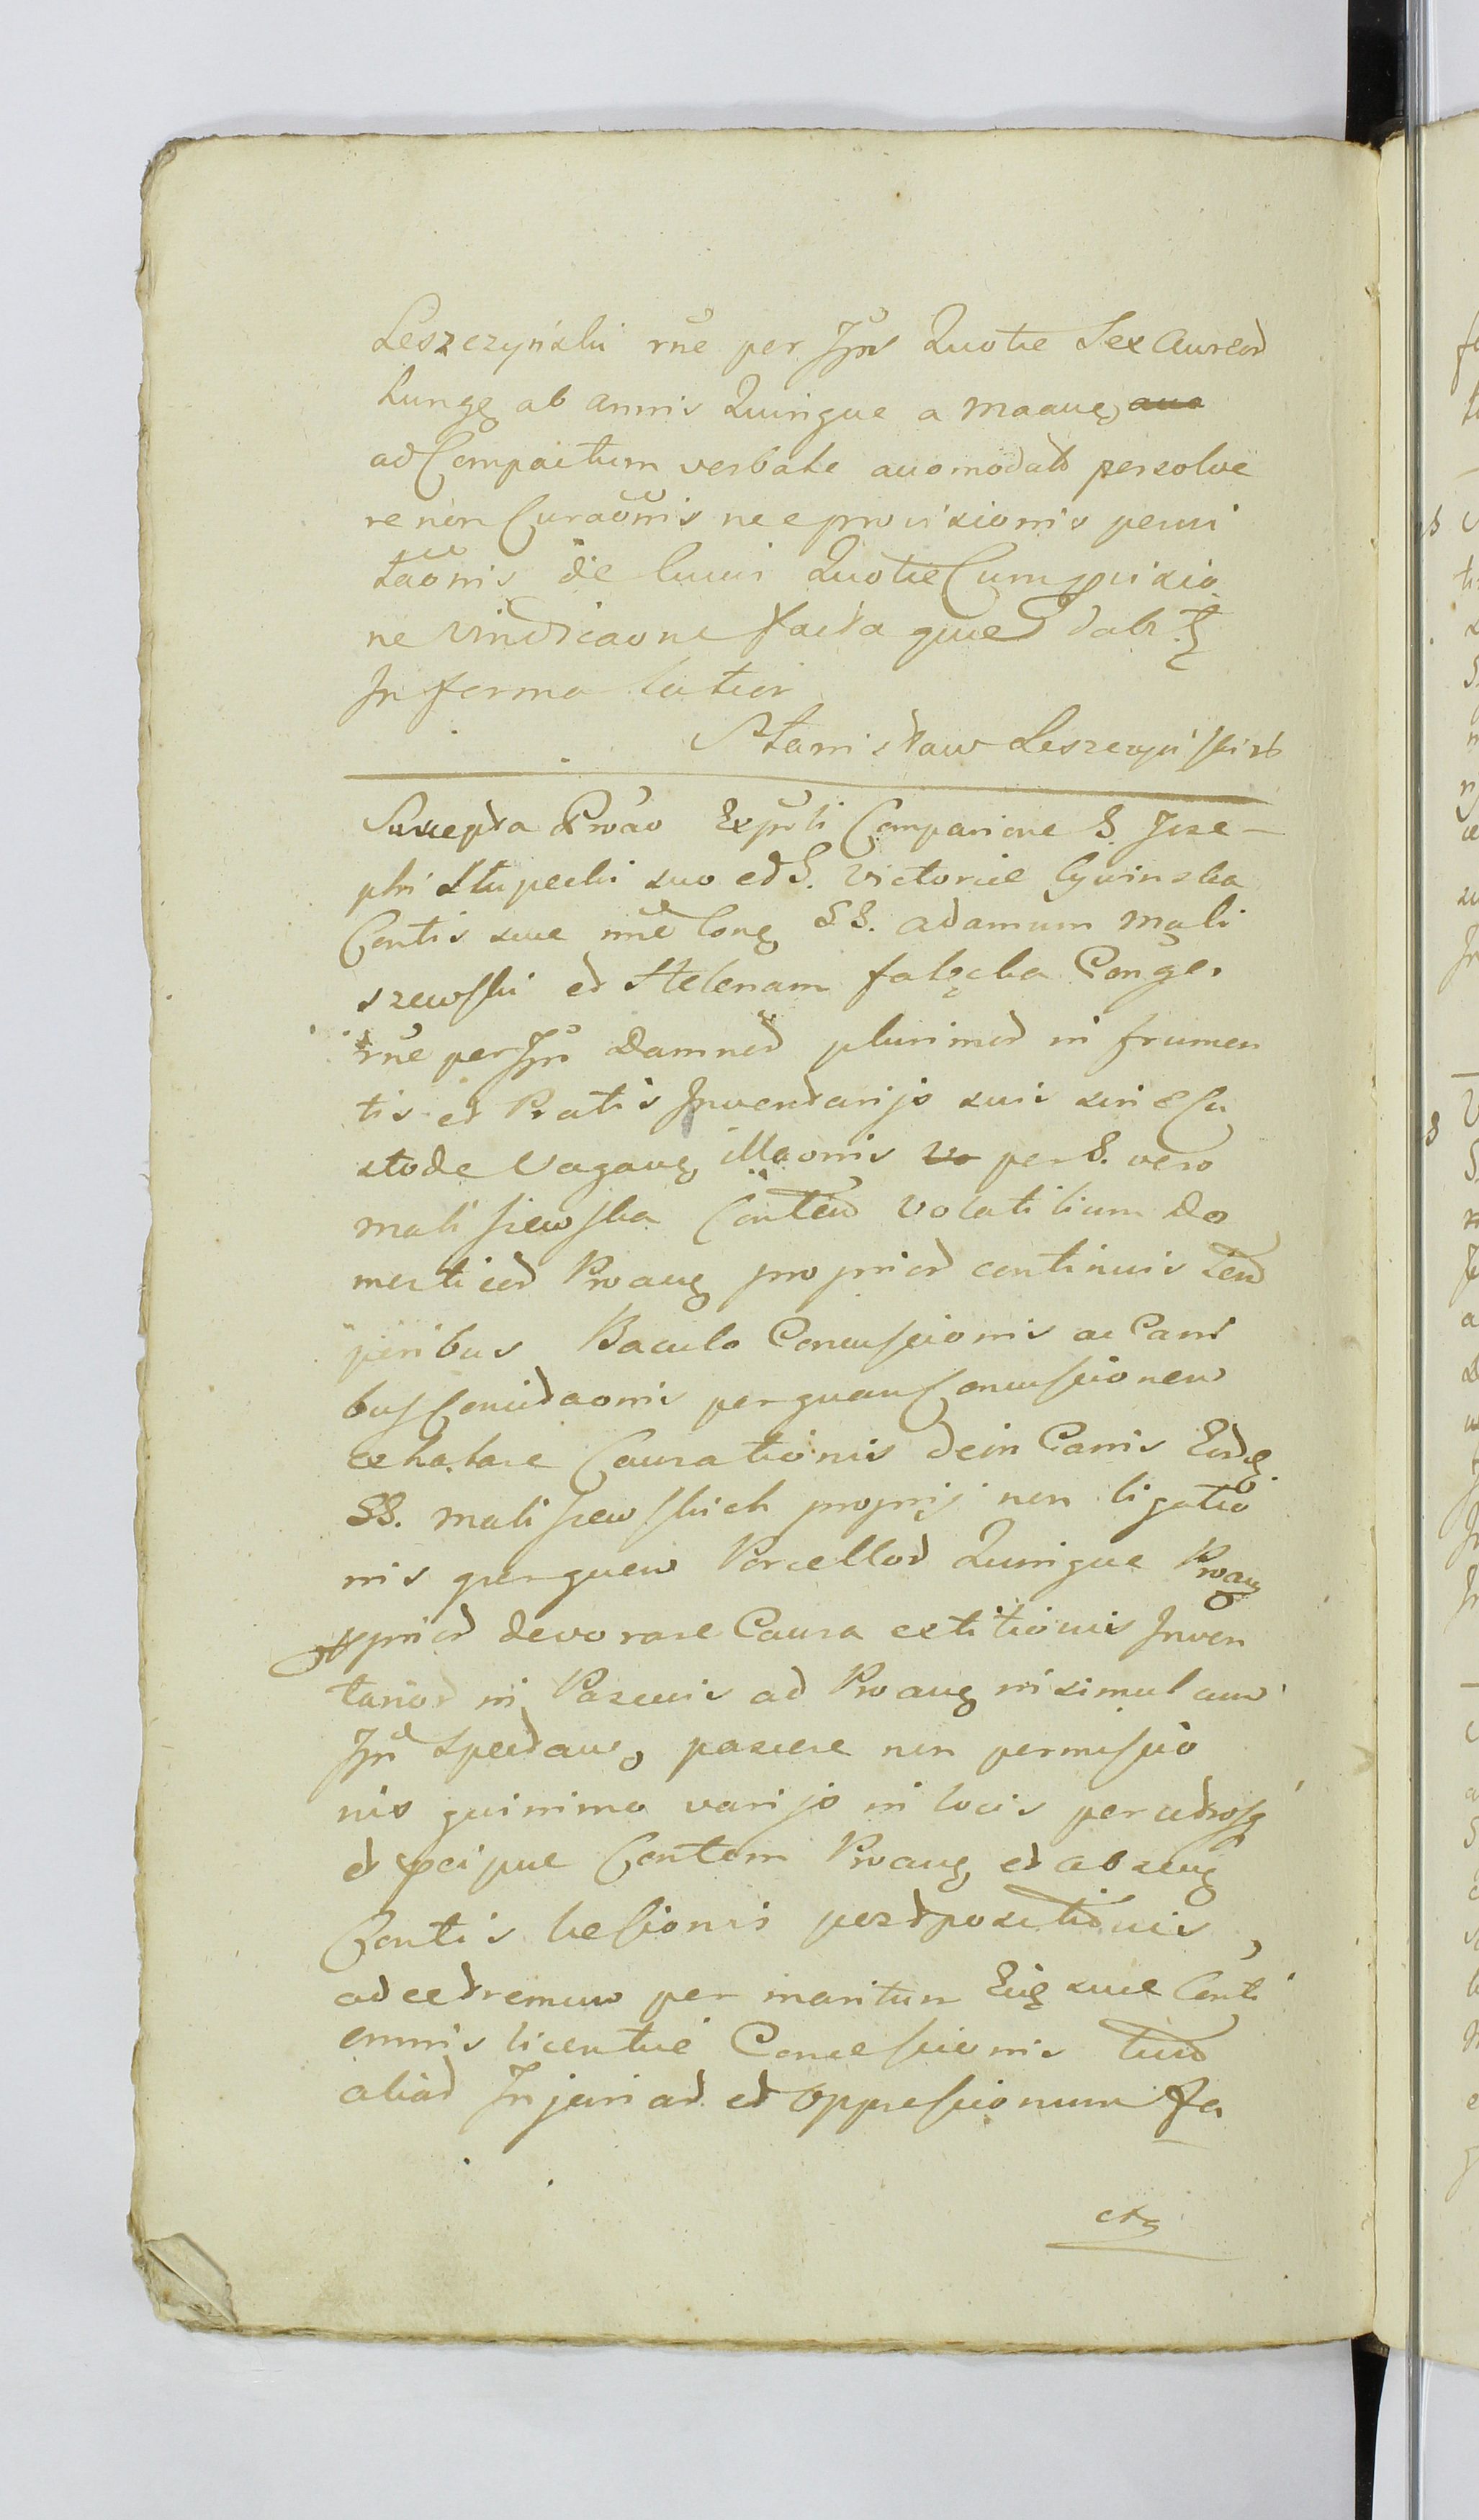 Leszczyński rne per Jpm Quotie Sex Aureor
hungg ab annis Quinque a Maaug
ad Compactum verbale auomodat persolve
re non Curaonis nec provisionis
taonis de Quotie Cum pvisio
ne vindicaone facta que dabt
In forma latior
Stanisław Leszczyński
Suscepta Proao Expti Comparione S. Jose-
phi Słupecki suo et S. Victorie Cywinska
Contis sue nne Cong SS. Adamum Mali
szewski et Helenam falęcka Conges
rne per Jpn Damnor plurimor in frumen
tis et Pratis Inventarijs suis sine Cu
stode Vagang illaonis per S. vero
Maliszewska Contem volatilium Do
mesticor Proang proprior continuis tem
poribus Baculo Concussionis ac Cani
bus Concidaonis per quam Concussionem
exhalare Causationis dein Canis Eordg
SS. Maliszewskich proprij non ligatio
nis per quem Porcellor Quinque Proang
pprior devorare Causa extitionis Inven
tarior in Pascuis ad Proang nisimul cum
Jpn spectang pascere non permissio
nis quinimo varijs in locis per utrosq
et pcipue Contem Proang et ab seng
Contis lesionis perdpositionis,
ad extremum per maritum Eig sue Conti
omnis licentie Concessionis tum
aliar Injuriar. et oppressionum fa
ctg